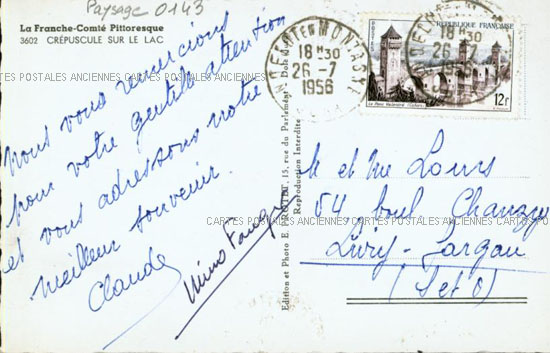 Paysage 0143
La Franche-Comté Pittoresque
3602 CRÉPUSCULE SUR LE LAC
Nous vous remercions
pour votre gentille attention
et vous adressons notre
meilleur souvenir.
Claude
Edition et Photo E. 15, rue du Parlement, Dole
Reproduction Interdite
MONTAGNE
18H30
26-7
1956
18H30
26
1956
REPUBLIQUE FRANÇAISE
POSTES
Le Pont Valentré Cahors
12F
M et Me Louis
54 boul Changy
Livry-Gargan
(S et O)
CARTES POSTALES ANCIENNES CARTES POSTALES ANCIENNES CARTES POSTALES ANCIENNES
CARTES POSTALES ANCIENNES CARTES POSTALES ANCIENNES